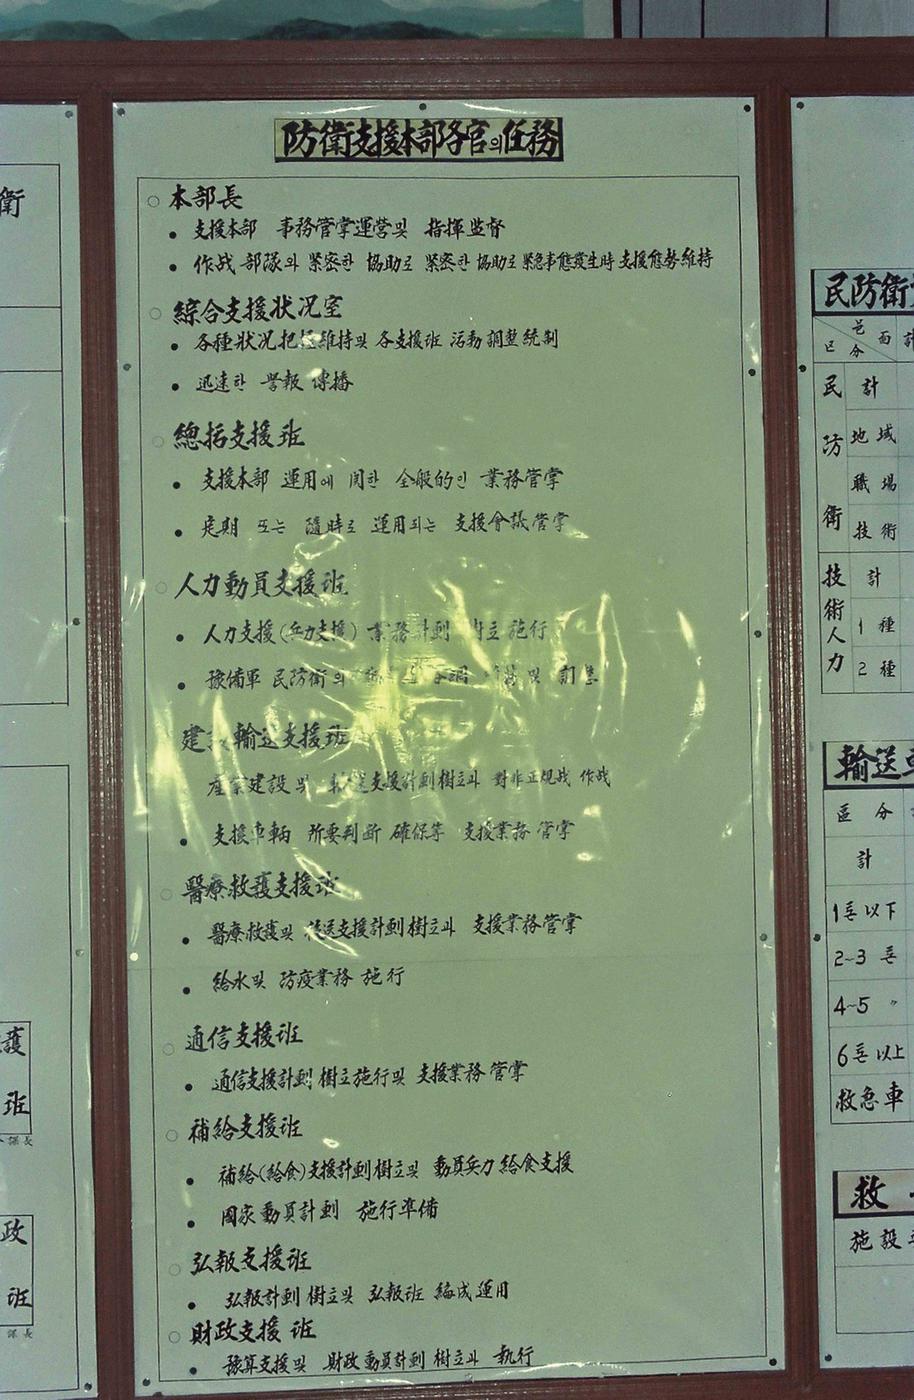 防衛支援本部各官의任務
○ 本部長
• 支援本部 事務管掌運營및 指揮监督
• 作战 部隊의 紧密한 協助로 紧密한 協助로 紧急事態發生時 支援態勢維持
○ 綜合支援状况室
• 各種狀况把握維持및 各支援班 活動調整統制
• 迅速한 警報 傳播
○ 總括支援班
• 支援本部 運用에 関한 全般的인 業務管掌
• 定期 또는 隨時로 運用되는 支援會議管掌
○ 人力動員支援班
• 人力支援(兵力支援) 業務計劃 樹立 施行
• 豫備軍 民防衛의
建 輸送支援班
産業建設 및 輸送支援計劃樹立과 對非正規战 作战
• 支援車輌 所要判断 確保等 支援業務管掌
○ 醫療救護支援班
• 醫療救護및 後送支援計劃樹立과 支援業務管掌
• 給水및 防疫業務 施行
○ 通信支援班
• 通信支援計劃樹立施行및 支援業務管掌
○ 補給支援班
• 補給(給食)支援計劃樹立및 動員兵力給食支援
• 國家動員計劃 施行準備
○ 弘報支援班
• 弘報計劃樹立및 弘報班 編成運用
○ 財政支援班
• 豫算支援및 財政動員計劃樹立과 執行
衛
護
班
課長
政
班
課長
民防衛
区分 邑面 計
民防衛 計
地域
職場
技術
技術人力 計
1種
2種
輸送車
區分
計
1톤以下
2~3톤
4~5 〃
6톤以上
救急車
救
施設